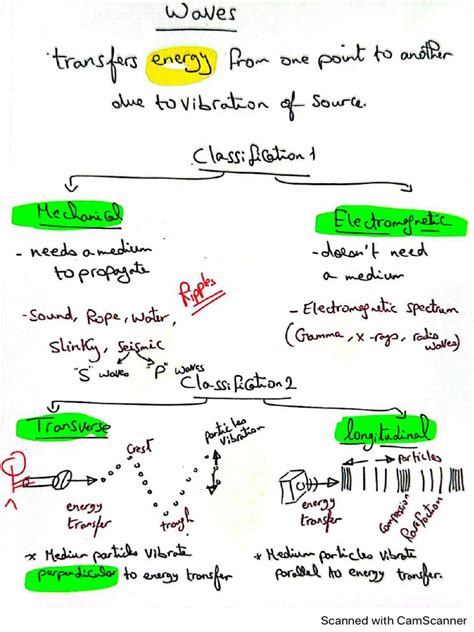 Waves
transfers energy from one point to another
due to vibration of source.
Classification 1
Mechanical
- needs a medium
to propagate
- Sound, Rope, Water,
Slinky, seismic
"S" waves "P" waves
Ripples
Electromagnetic
- doesn't need
a medium
- Electromagnetic spectrum
(Gamma, x-rays, radio
waves)
Classification 2
Transverse
Crest
particles
vibration
energy
transfer
trough
* Medium particles vibrate
perpendicular to energy transfer
longitudinal
particles
energy
transfer
compression
Rarefaction
* Medium particles vibrate
parallel to energy transfer.
Scanned with CamScanner